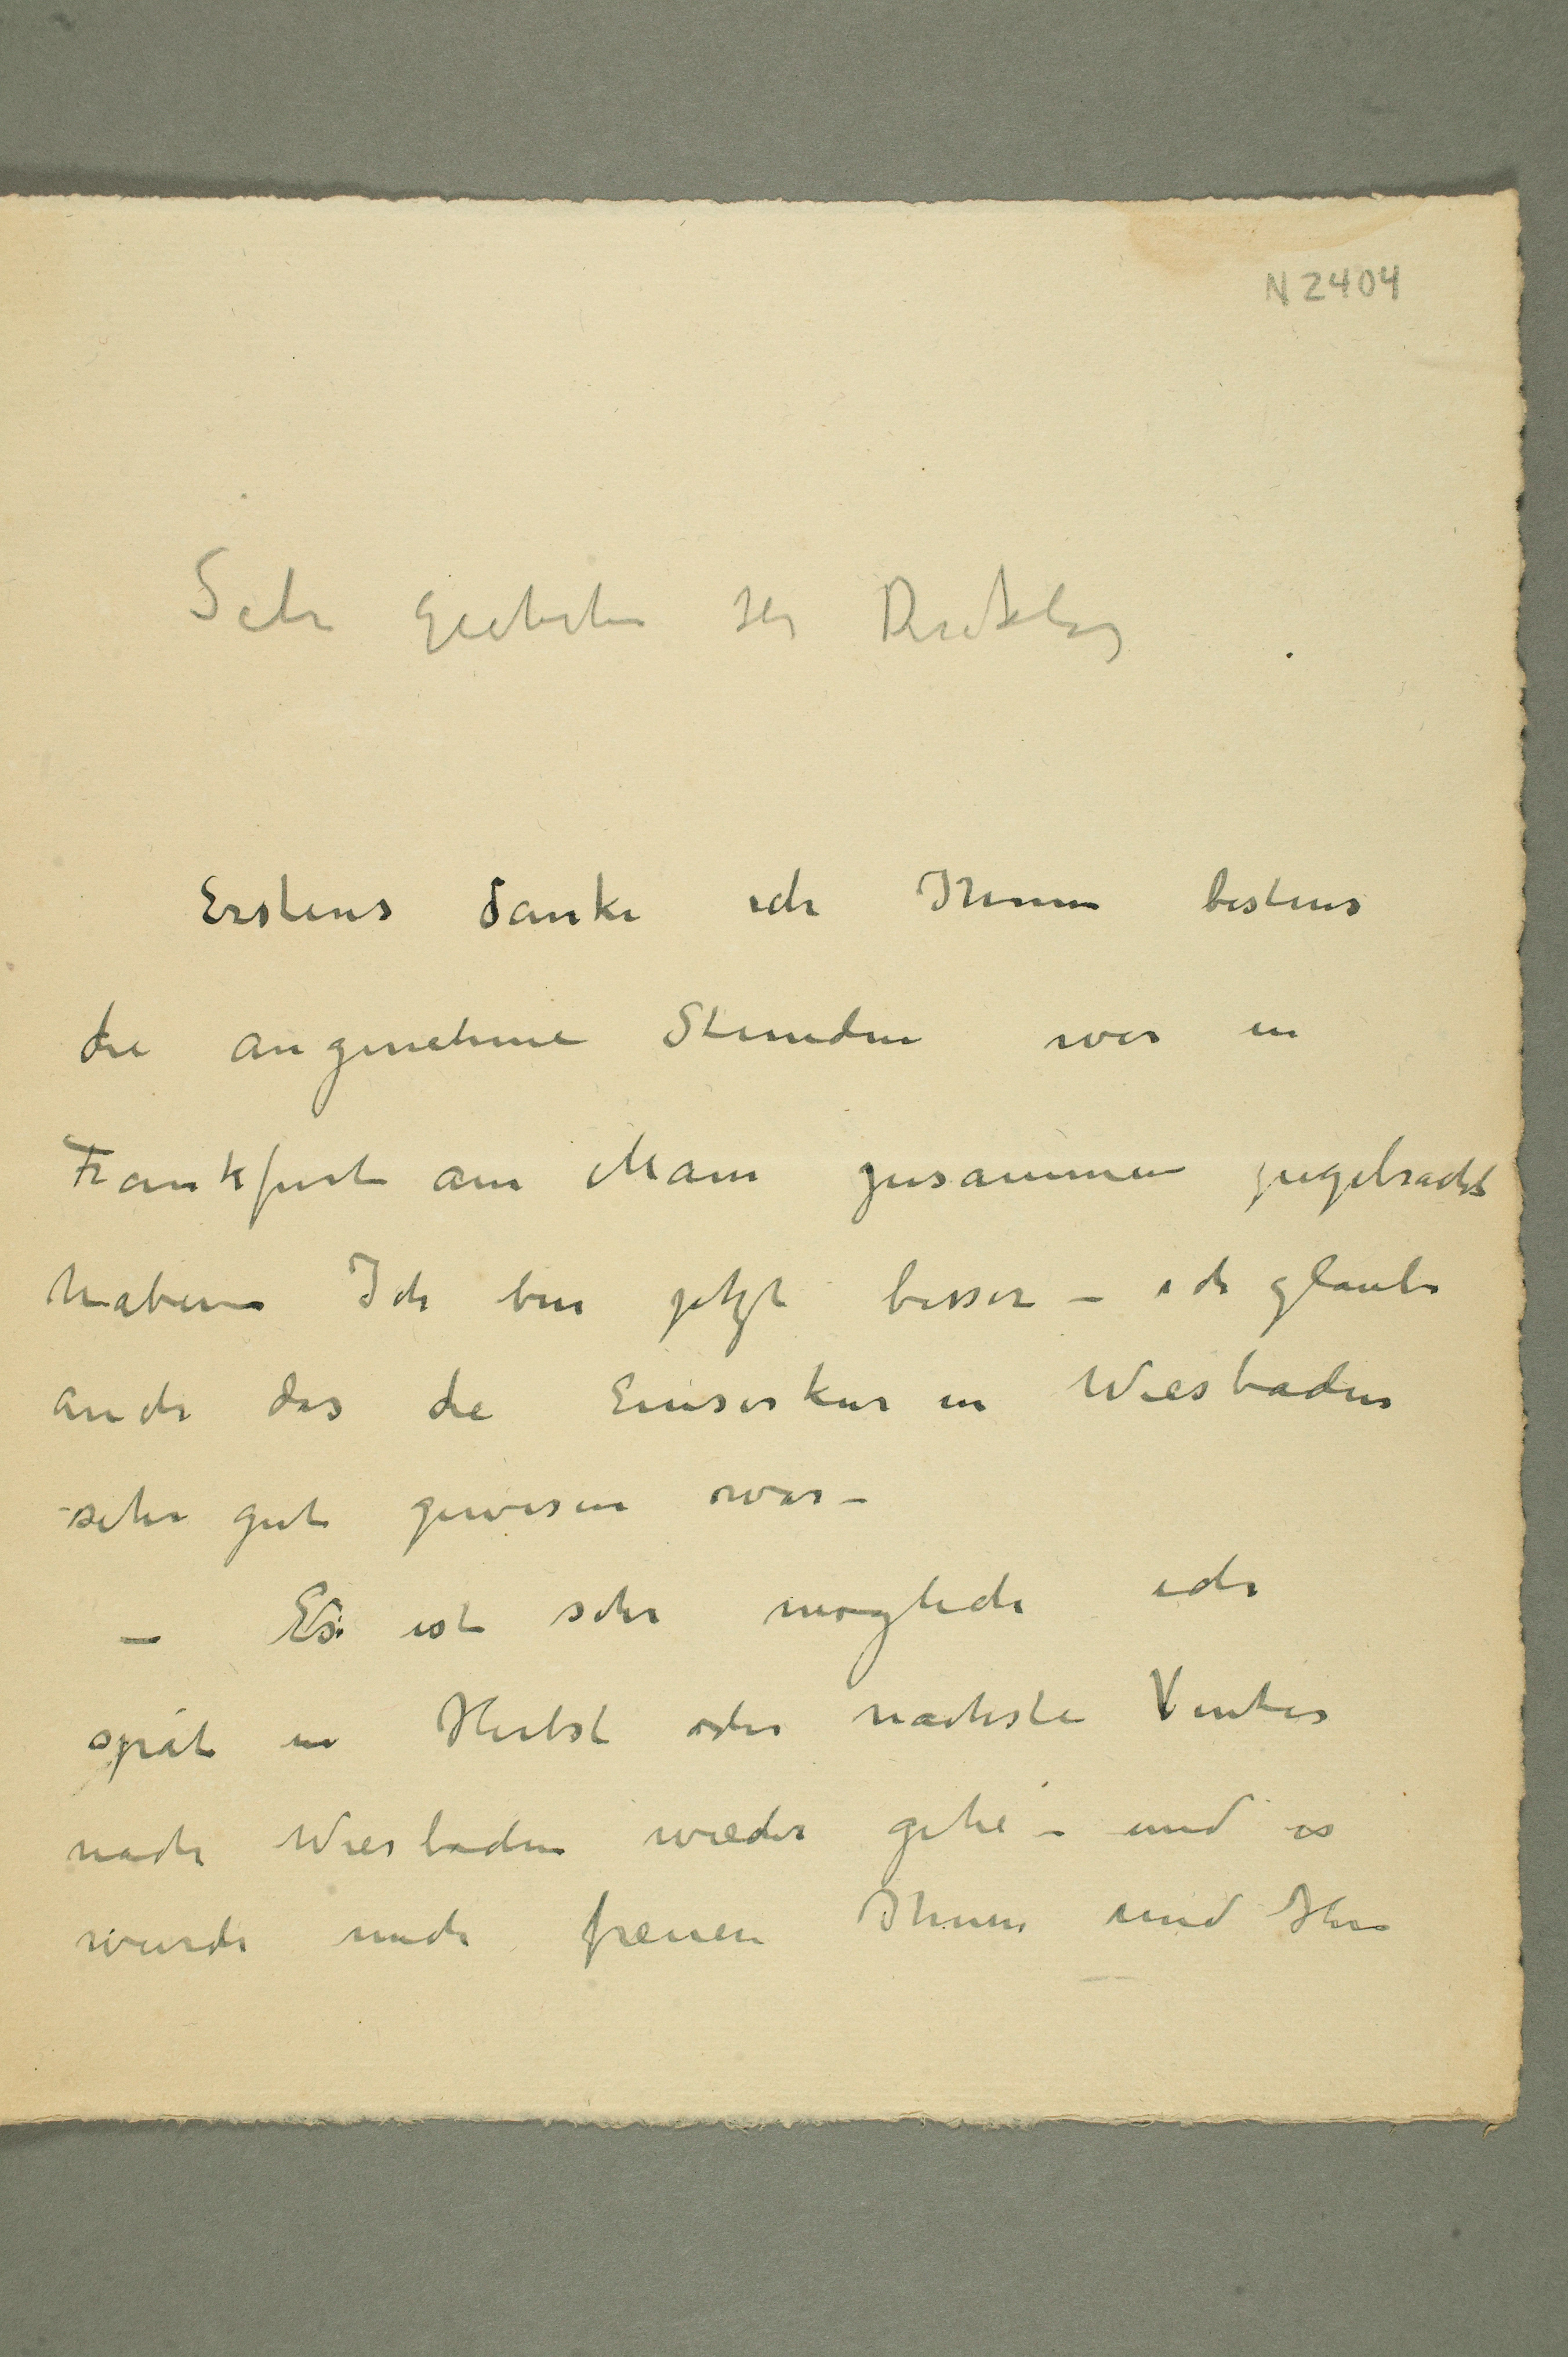 N 2404
Sehr Geehrter Hr Direktor
Erstens danke ich Ihnen bestens
die angenehme Stunden wir in
Frankfurt am Main zusammen zugebracht
haben Ich bin jetzt besser – ich glaube
auch das die Emserkur in Wiesbaden
sehr gut gewesen war –
– Es ist sehr moglich ich
spät in Herbst oder nachste Vinter
nach Wiesbaden wieder gehe – und es
wurde mich freuen Ihnen und Ihre